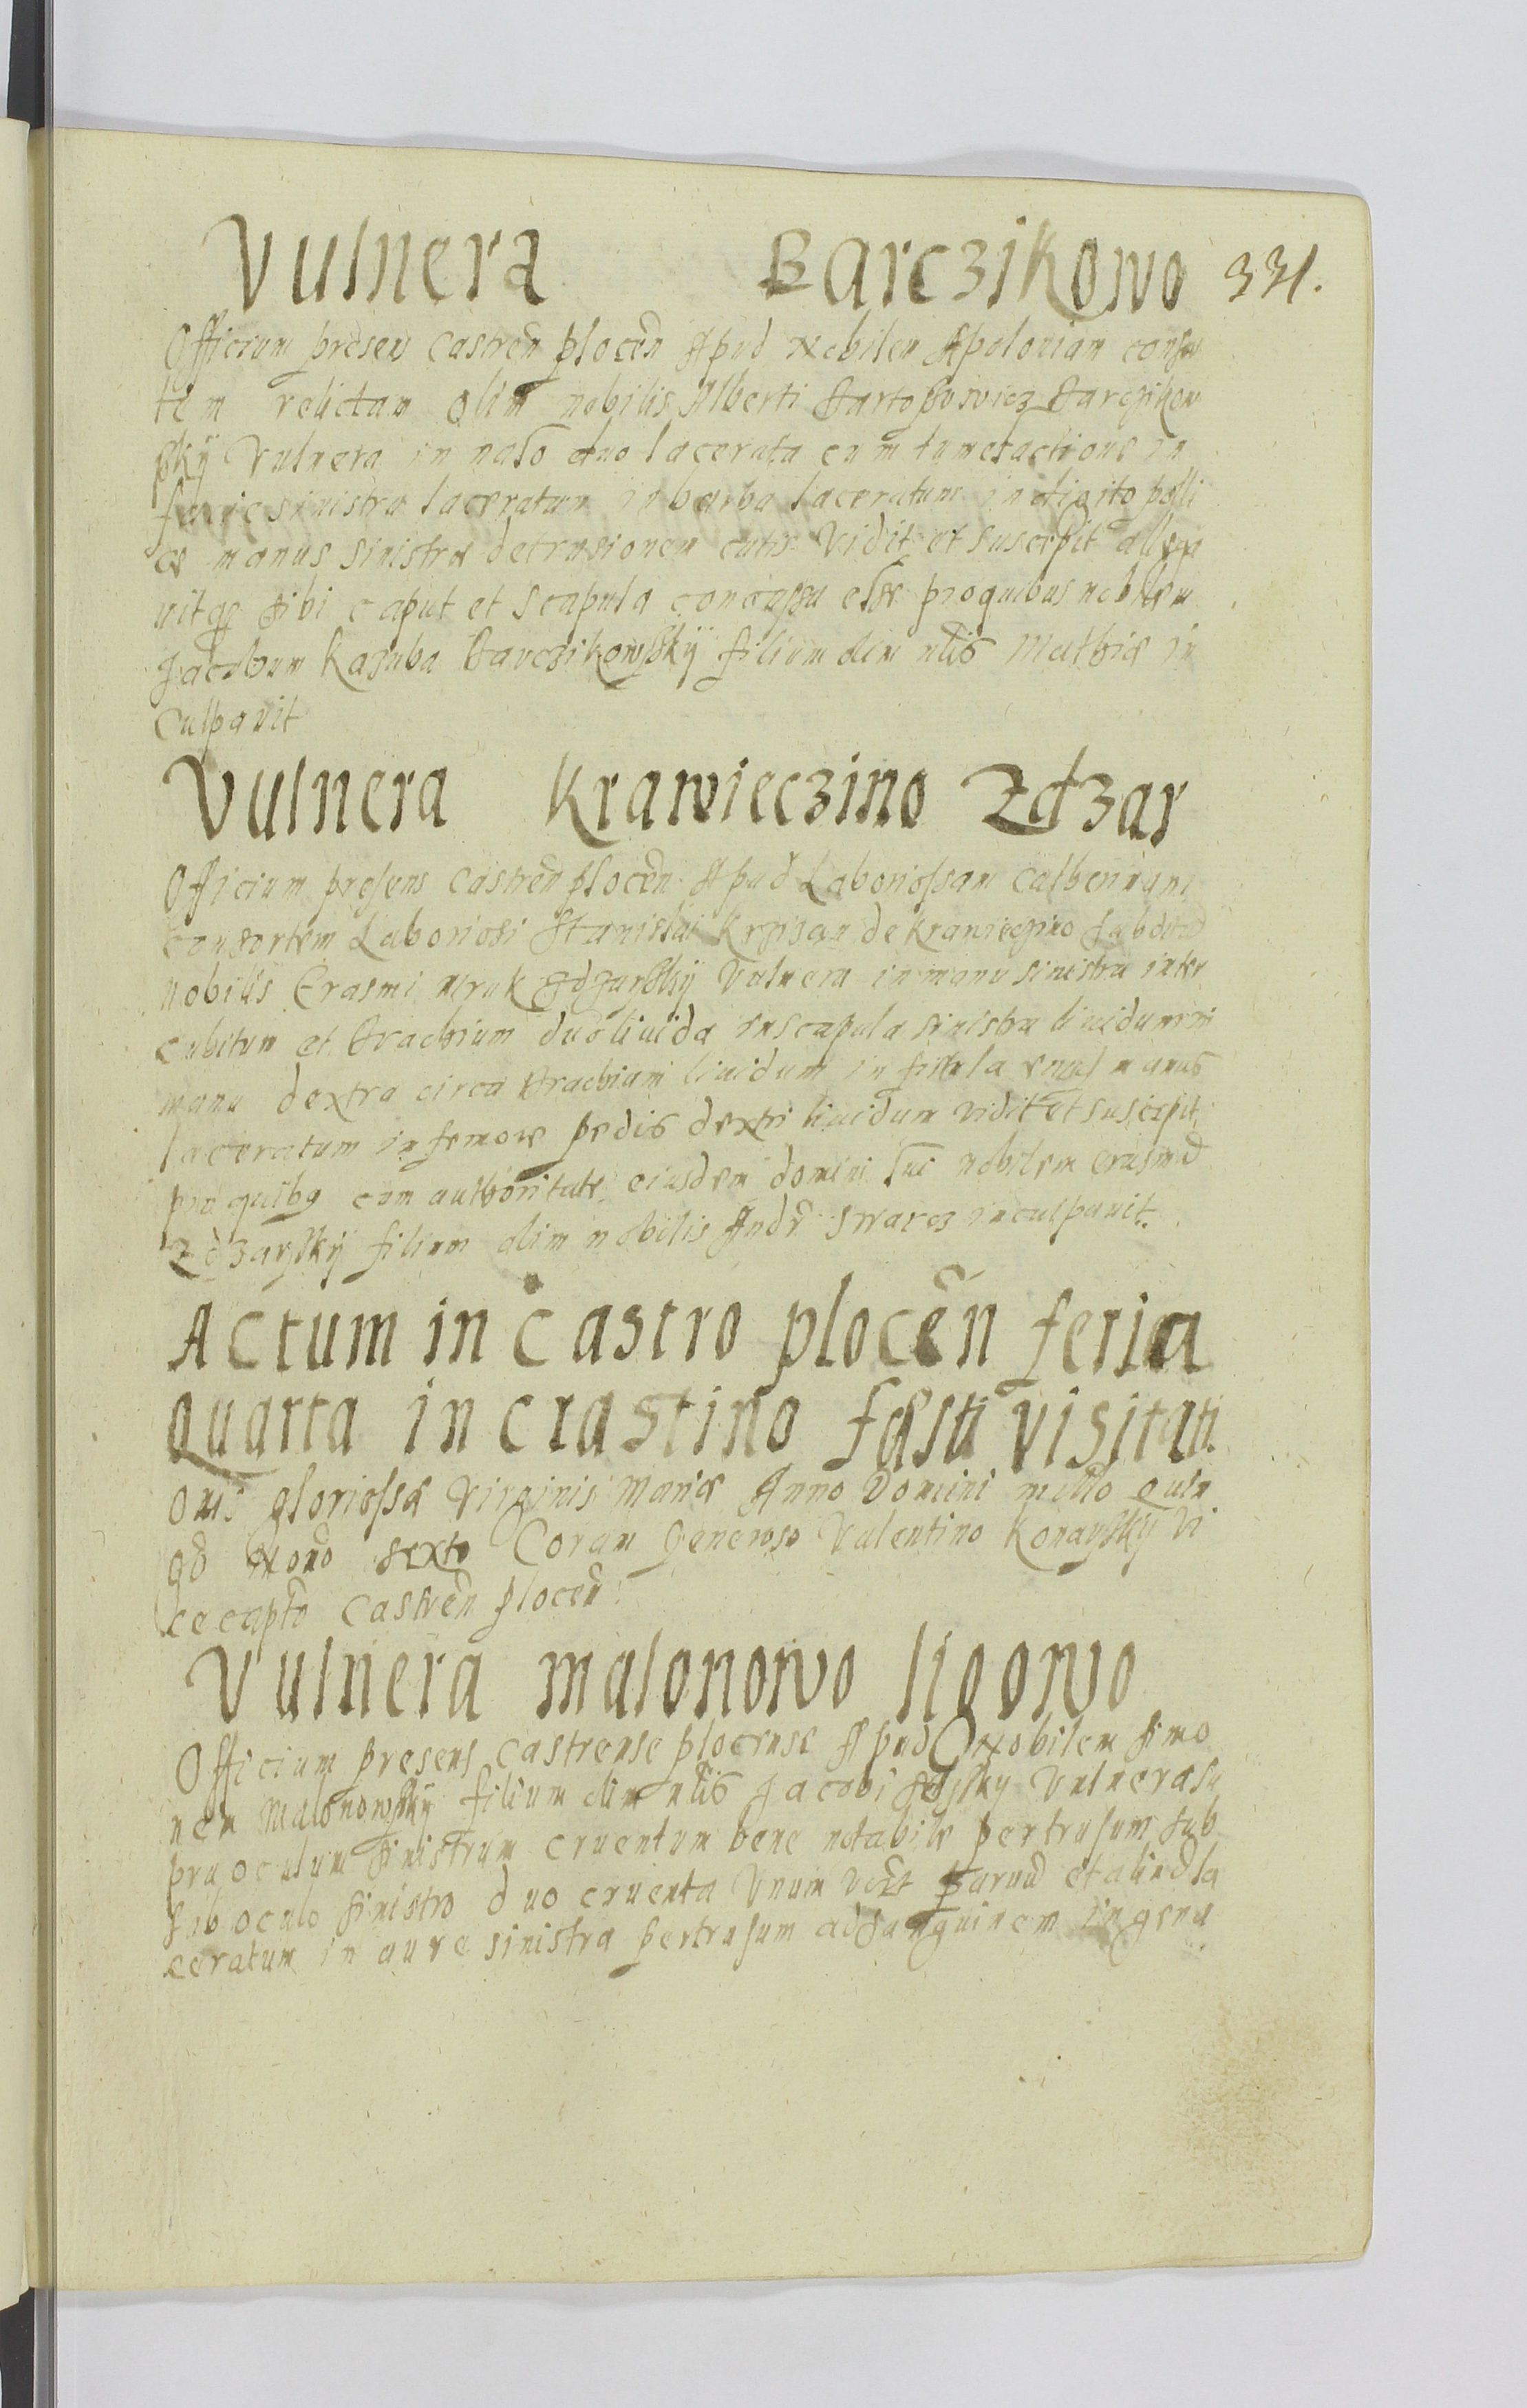 Vulnera Barczikowo 331.
Officium presen Castren̄ plocen̄ Apud Nobilem Apoloniam consor
tem relictam olim nobilis Alberti Bartossowicz Barczikow
sky Vulnera in naso duo lacerata cum tumefactione in
facie sinistra laceratum in barba laceratum in digito polli
ce manus sinistræ detrusionem cutis vidit et suscepit allega
uitqȝ sibi caput et scapula concussa esse proquibus nobilem
Jacobum Kasuba Barczikowsky filium olim nlis Mathiæ in
culpavit
Vulnera Krawieczino Zdzar
Officium presens Castren̄ plocen̄ Apud Laboriossam Catherinam
consortem Laboriosi Stanislai Krzisan de Krawieczino subditā
nobilis Erasmi Mruk Zdzarsky Vulnera in manu sinistra inter
cubitum et brachium duo liuida in scapula sinistra liuidum in
manu dextra circa brachium liuidum in fistula manus
laceratum in femore pedis dextri liuidum vidit et suscepit
pro quibȝ cum authoritate eiusdem domini sui nobilem erasmū
Zdzarsky filium olim nobilis Andr̄ Swarcz inculpauit.
Actum in Castro plocen̄ feria
quarta in crastino fæsti visitati
onis gloriossæ Virginis Mariæ Anno Domini millo quin
gō Nonō sexto Coram Generoso Valentino Konarsky Vi
cecaptō Castren̄ plocen̄
Vulnera malonowo ligowo
Officium presens castrense plocense Apud Nobilem Simo
nem Malonowsky filium olim nlis Jacobi Vulnera su
pra oculum sinistrum cruentum bene notabile pertrusum sub
sub oculo sinistro duo cruenta Vnum paruū et aliud la
ceratum in aure sinistra pertrusum ad sanguinem in genu